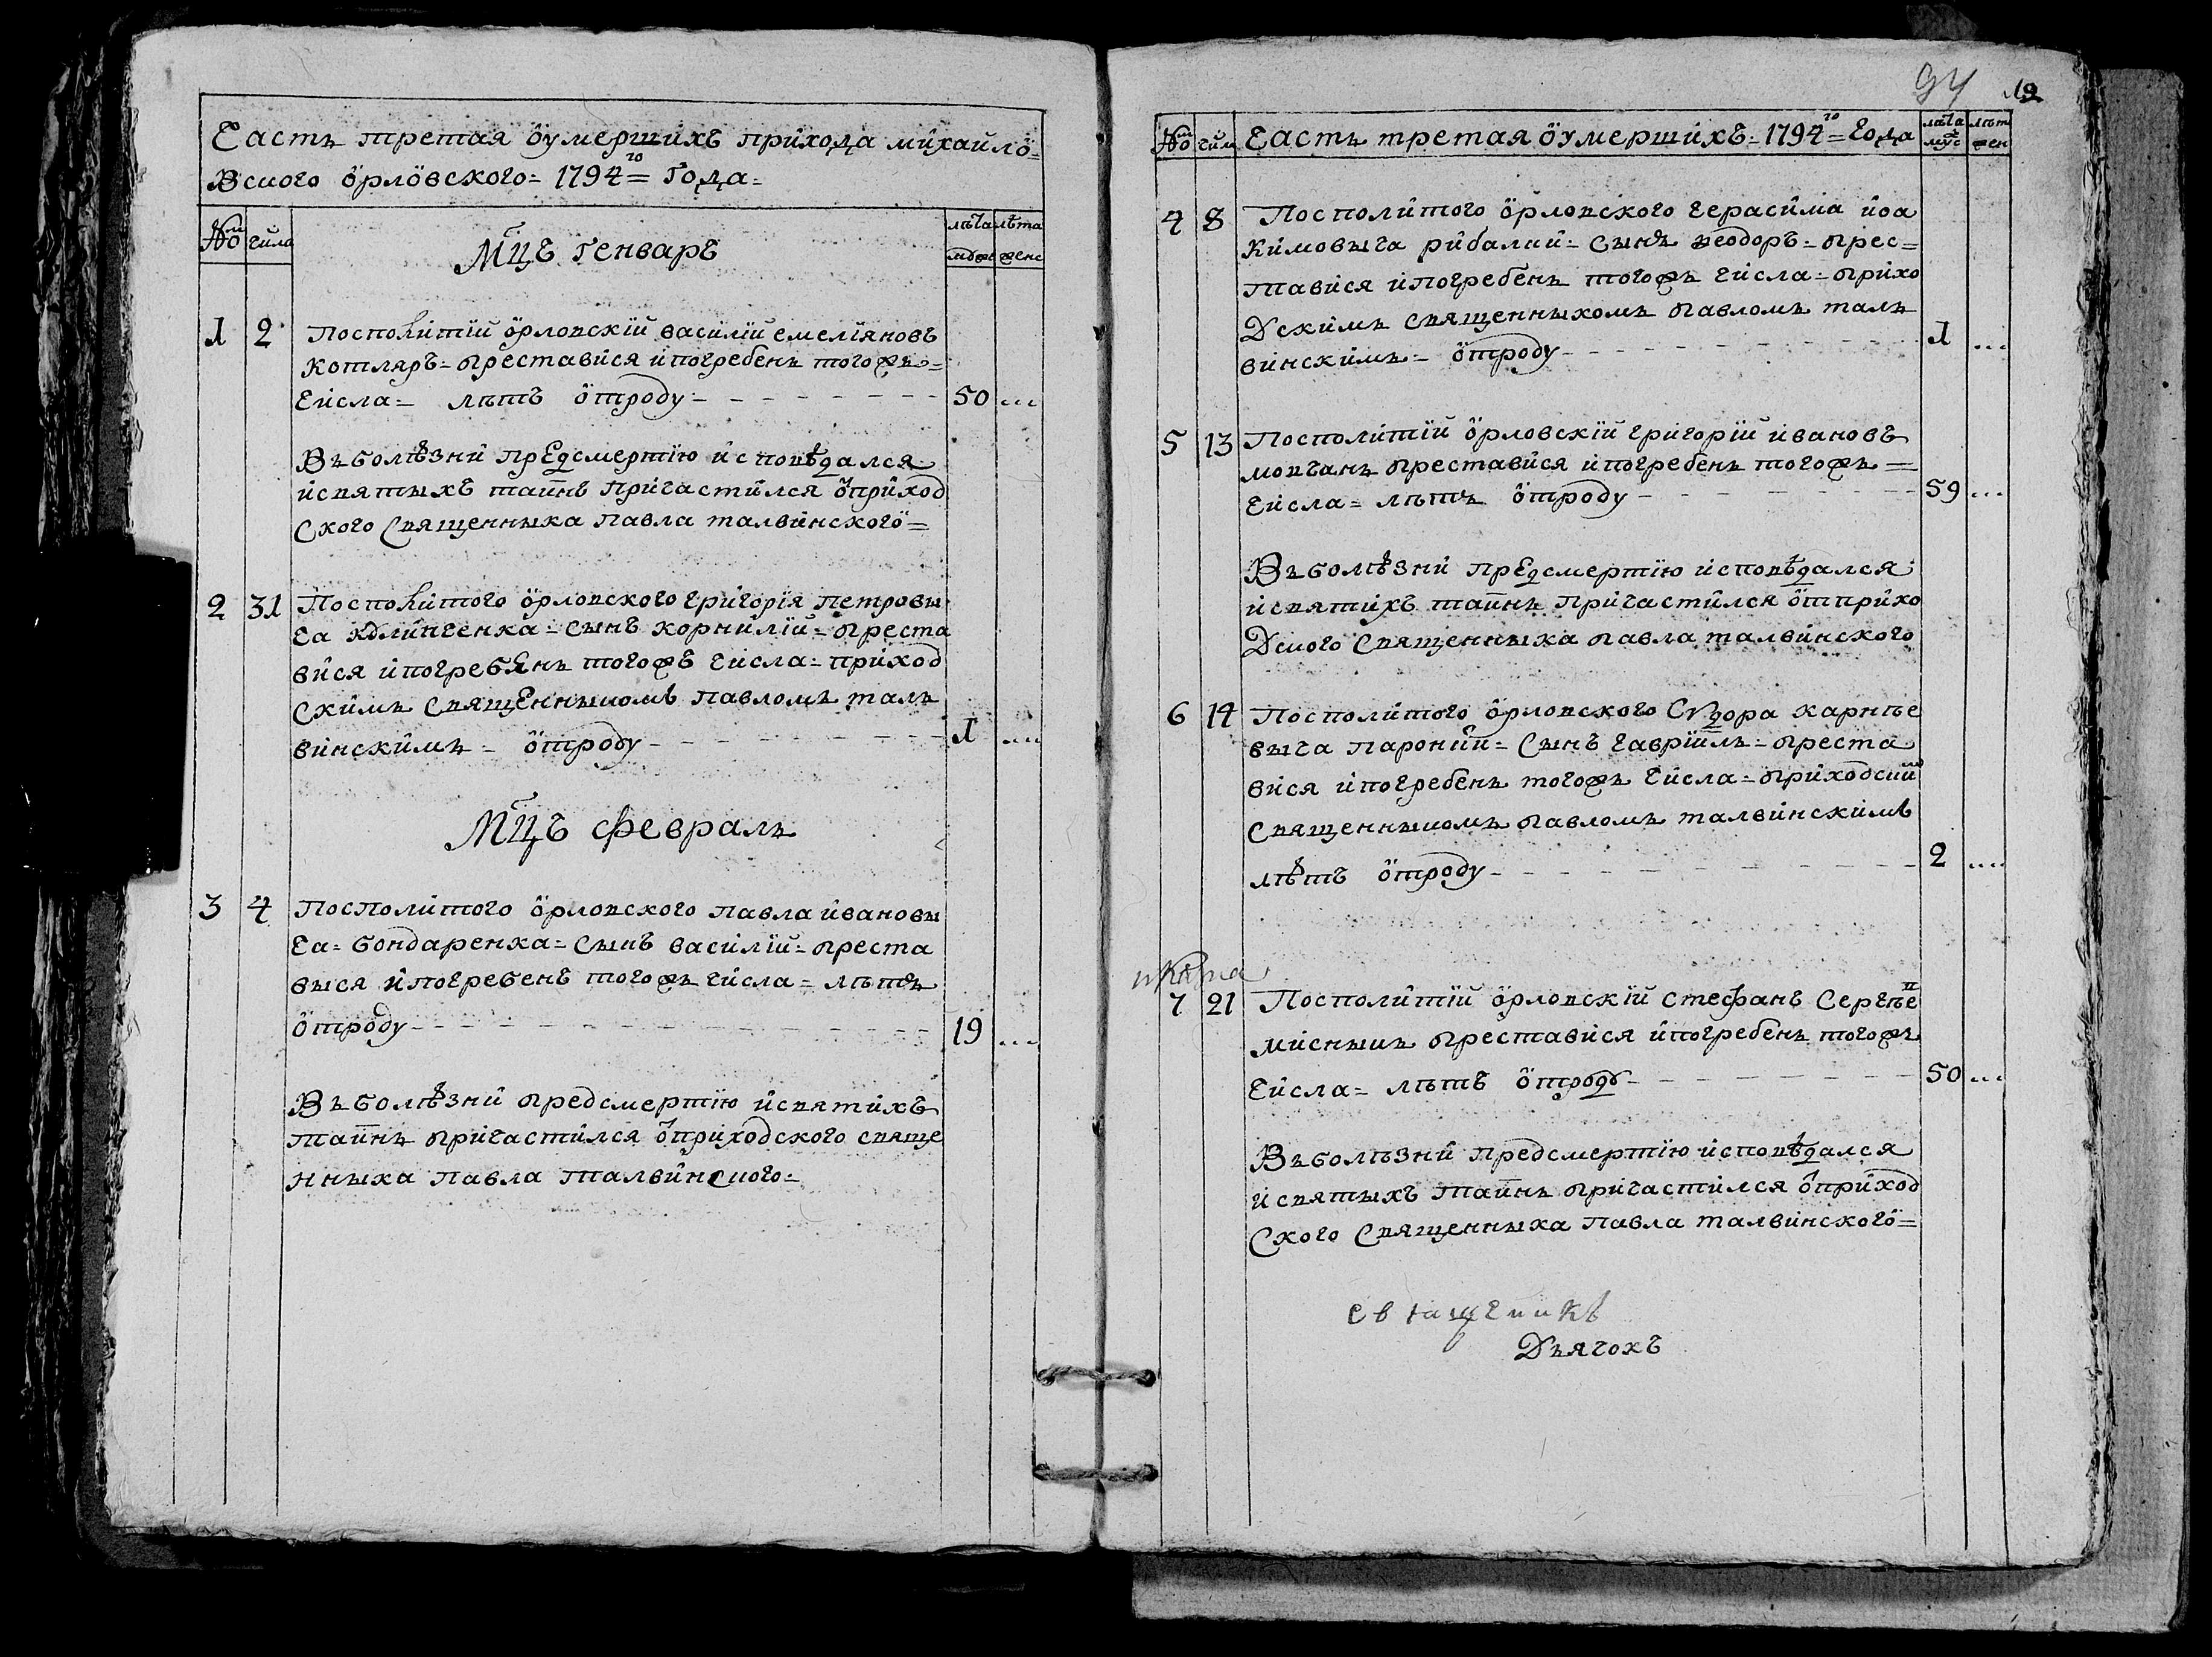 Часть третая о умершихъ прихода михайло=
вского орловского = 1794 го = года =
№ числа
Мцъ генваръ
лѣта мужс лѣта женс
1 2 Посполитій орловскій василій емеліановъ
котляръ = преставися и погребенъ тогожъ =
числа = лѣтъ отроду - - - 50 ...
Въ болѣзни предсмертію исповѣдался
и святыхъ таинъ причастился от приход
ского священныка павла талвинского =
2 31 Посполитого орловского григорія петровы
ча сынъ корнилій = преста
вися и погребенъ тогожъ числа = приход
скимъ священныкомъ павломъ талъ
винскимъ = отроду - - - 1 ...
Мцъ февралъ
3 4 Посполитого орловского павла ивановы
ча = бондаренка = сынъ василій = преста
выся и погребенъ тогожъ числа = лѣтъ
отроду - - - 19 ...
Въ болѣзни предсмертію и святихъ
таинъ причастился от приходского свяще
нныка павла талвинского =
94
№ числ Часть третая о умершихъ = 1794 го = года лѣта муж лѣт жен
4 8 Посполитого орловского герасима иоа
кимовыча рибалки = сынъ феодоръ = прес=
тавися и погребенъ тогожъ числа = прихо
дскимъ священныкомъ павломъ талъ
винскимъ = отроду - - - 1 ...
5 13 Посполитій орловскій григорій ивановъ
мовчанъ преставися и погребенъ тогожъ =
числа = лѣтъ отроду - - - 59 ...
Въ болѣзни предсмертію исповѣдался
и святихъ таинъ причастился от прихо
дского священныка павла талвинского
6 14 Посполитого орловского сѵдора карпѣе
выча сынъ гавріилъ = преста
вися и погребенъ тогожъ числа = приходским
священныкомъ павломъ талвинскимъ
лѣтъ отроду - - - 2 ....
7 21 Посполитій орловскій стефанъ сергѣев
преставися и погребенъ тогожъ
числа = лѣтъ отроду - - - 50 ...
Въ болѣзни предсмертію исповѣдался
и святыхъ таинъ причастился от приход
ского священныка павла талвинского =
священикъ
Дъячокъ